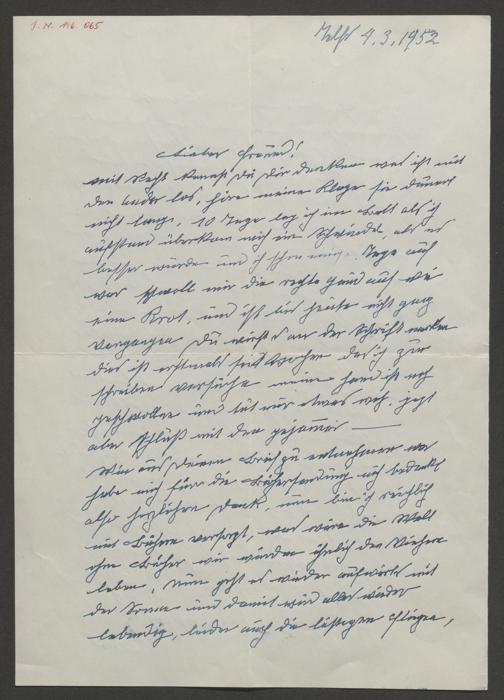 J. N. 116.065
Telfs 4.3.1952
Lieber Freund!
mit Recht kannst Du Dir denken was ist mit
den Ander los, höre meine Klage sie dauert
nicht lange. 10 Tage lag ich im Bett als ich
aufstand überkam mich ein Schwindel, als es
besser wurde und ich schon einige Tage auf
war schwoll mir die rechte Hand auf wie
eine Krot, und ist bis heute nicht ganz
vergangen, Du wirst es an der Schrift merken
dies ist erstmals seit Wochen das ich zu
schreiben versuche meine Hand ist noch
geschwollen und tut mir etwas weh. jezt
aber Schluß mit den gejamer —
Wie aus Deinen Brief zu entnehmen war
habe mich für die Büchersendung nicht bedankt
also herzlichen Dank, nun bin ich reichlich
mit Bücher versorgt, was wäre die Welt
ohne Bücher wir würden ähnlich den Viehern
leben, Nun geht es wieder aufwärts mit
der Sonne und damit wird alles wieder
lebendig, leider auch die lästigen Fliegen,